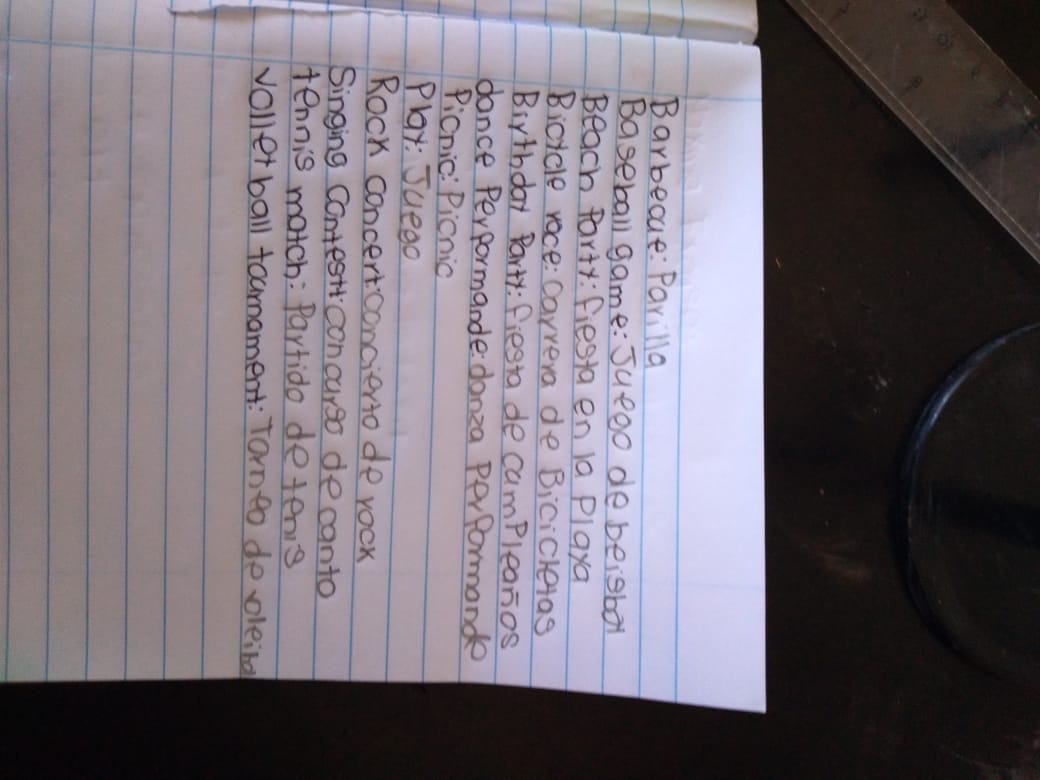 Barbecue: Parilla
Baseball game: Juego de beisbol
Beach Party: fiesta en la Playa
Bicycle race: carrera de Bicicletas
Birthday Party: fiesta de cumPleaños
dance Performande: danza Performande
Picnic: Picnic
Play: Juego
Rock concert: concierto de rock
Singing contest: concurso de canto
tennis match: Partido de tenis
volleyball tournament: Torneo de